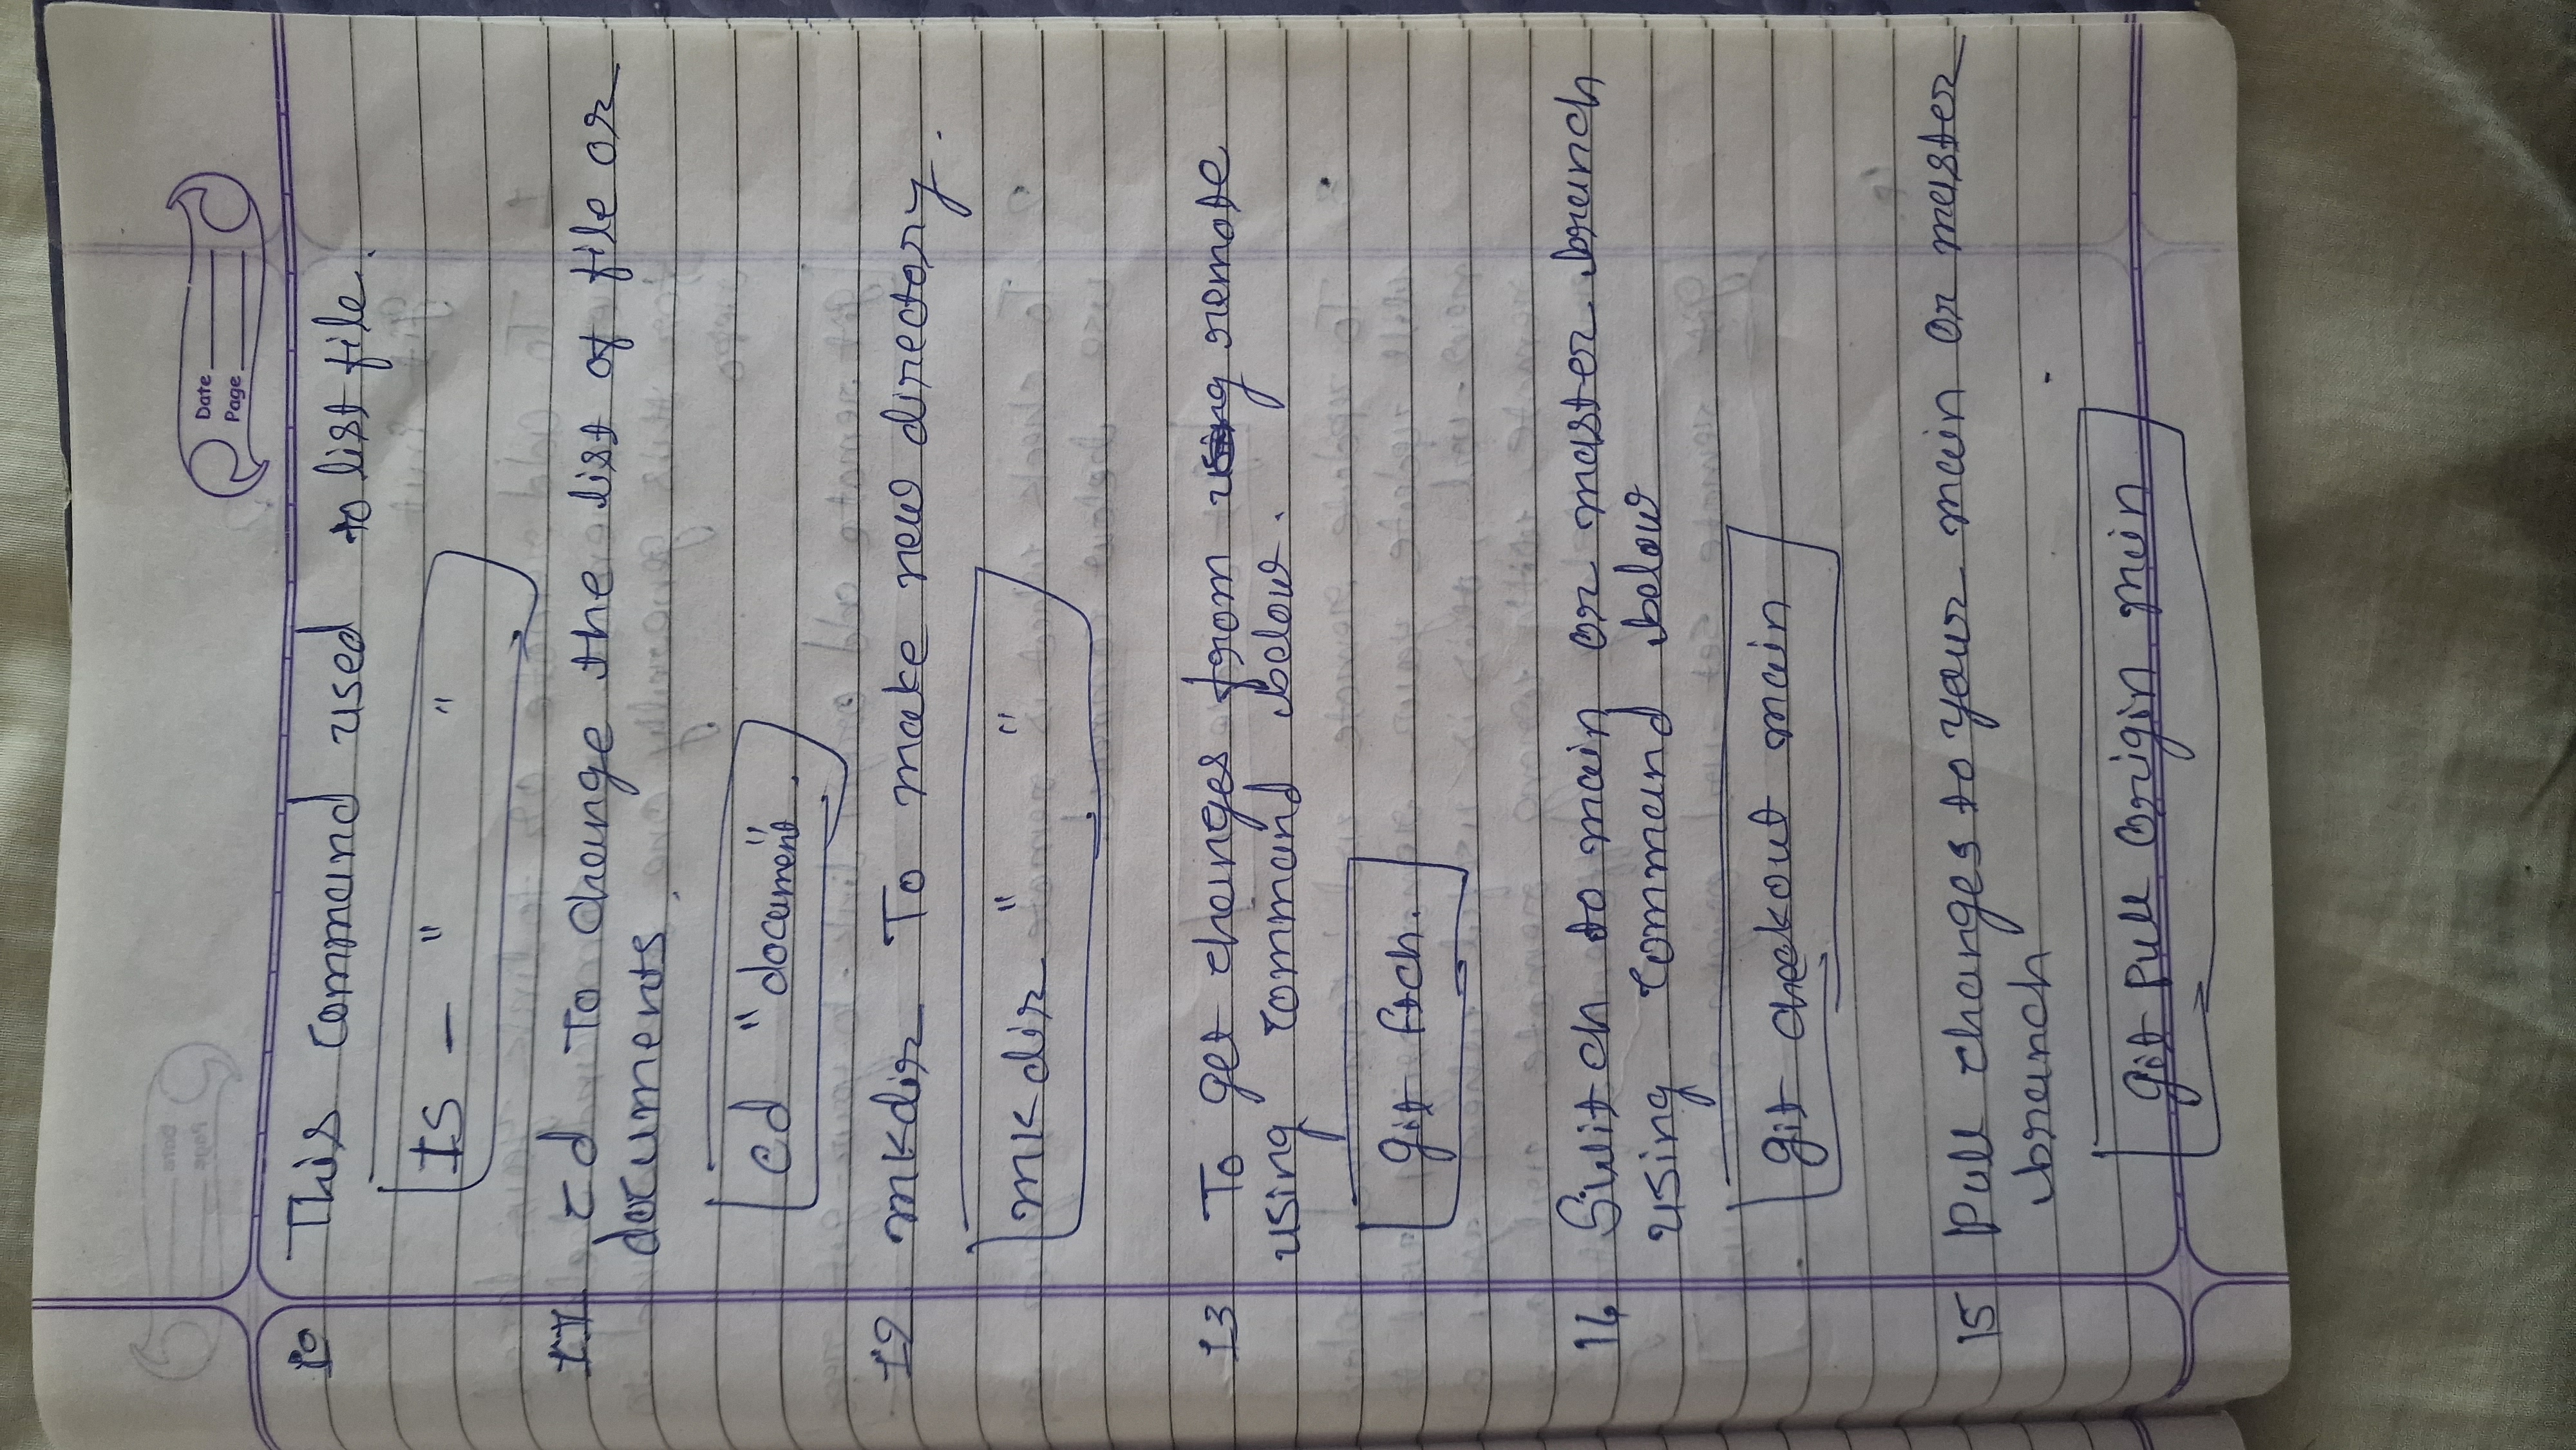 Date
Page
10 This command used to list file.
IS - " "
11 cd To change the list of file or
documents.
cd "document".
12 mkdir To make new directory.
mkdir " "
13 To get changes from remote
using command below.
git ftch.
14 Switch to main or master branch
using command below
git checkout main
15 Pull changes to your main or master
branch
git pull origin main